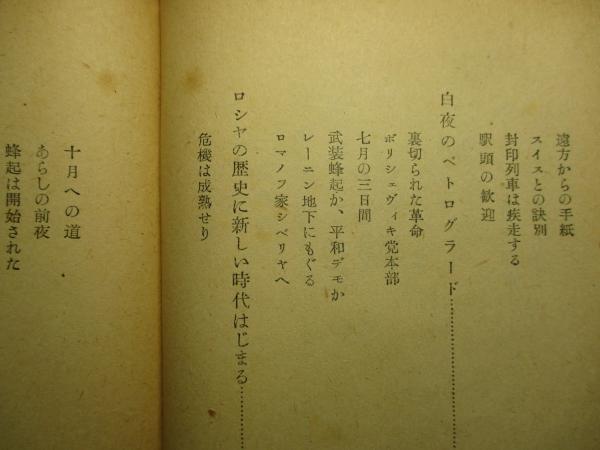 遠方からの手紙
スイスとの訣別
封印列車は疾走する
駅頭の歓迎
白夜のペトログラード…………
裏切られた革命
ボリシェヴィキ党本部
七月の三日間
武装蜂起か、平和デモか
レーニン地下にもぐる
ロマノフ家シベリヤへ
ロシヤの歴史に新しい時代はじまる…………
危機は成熟せり
十月への道
あらしの前夜
蜂起は開始された